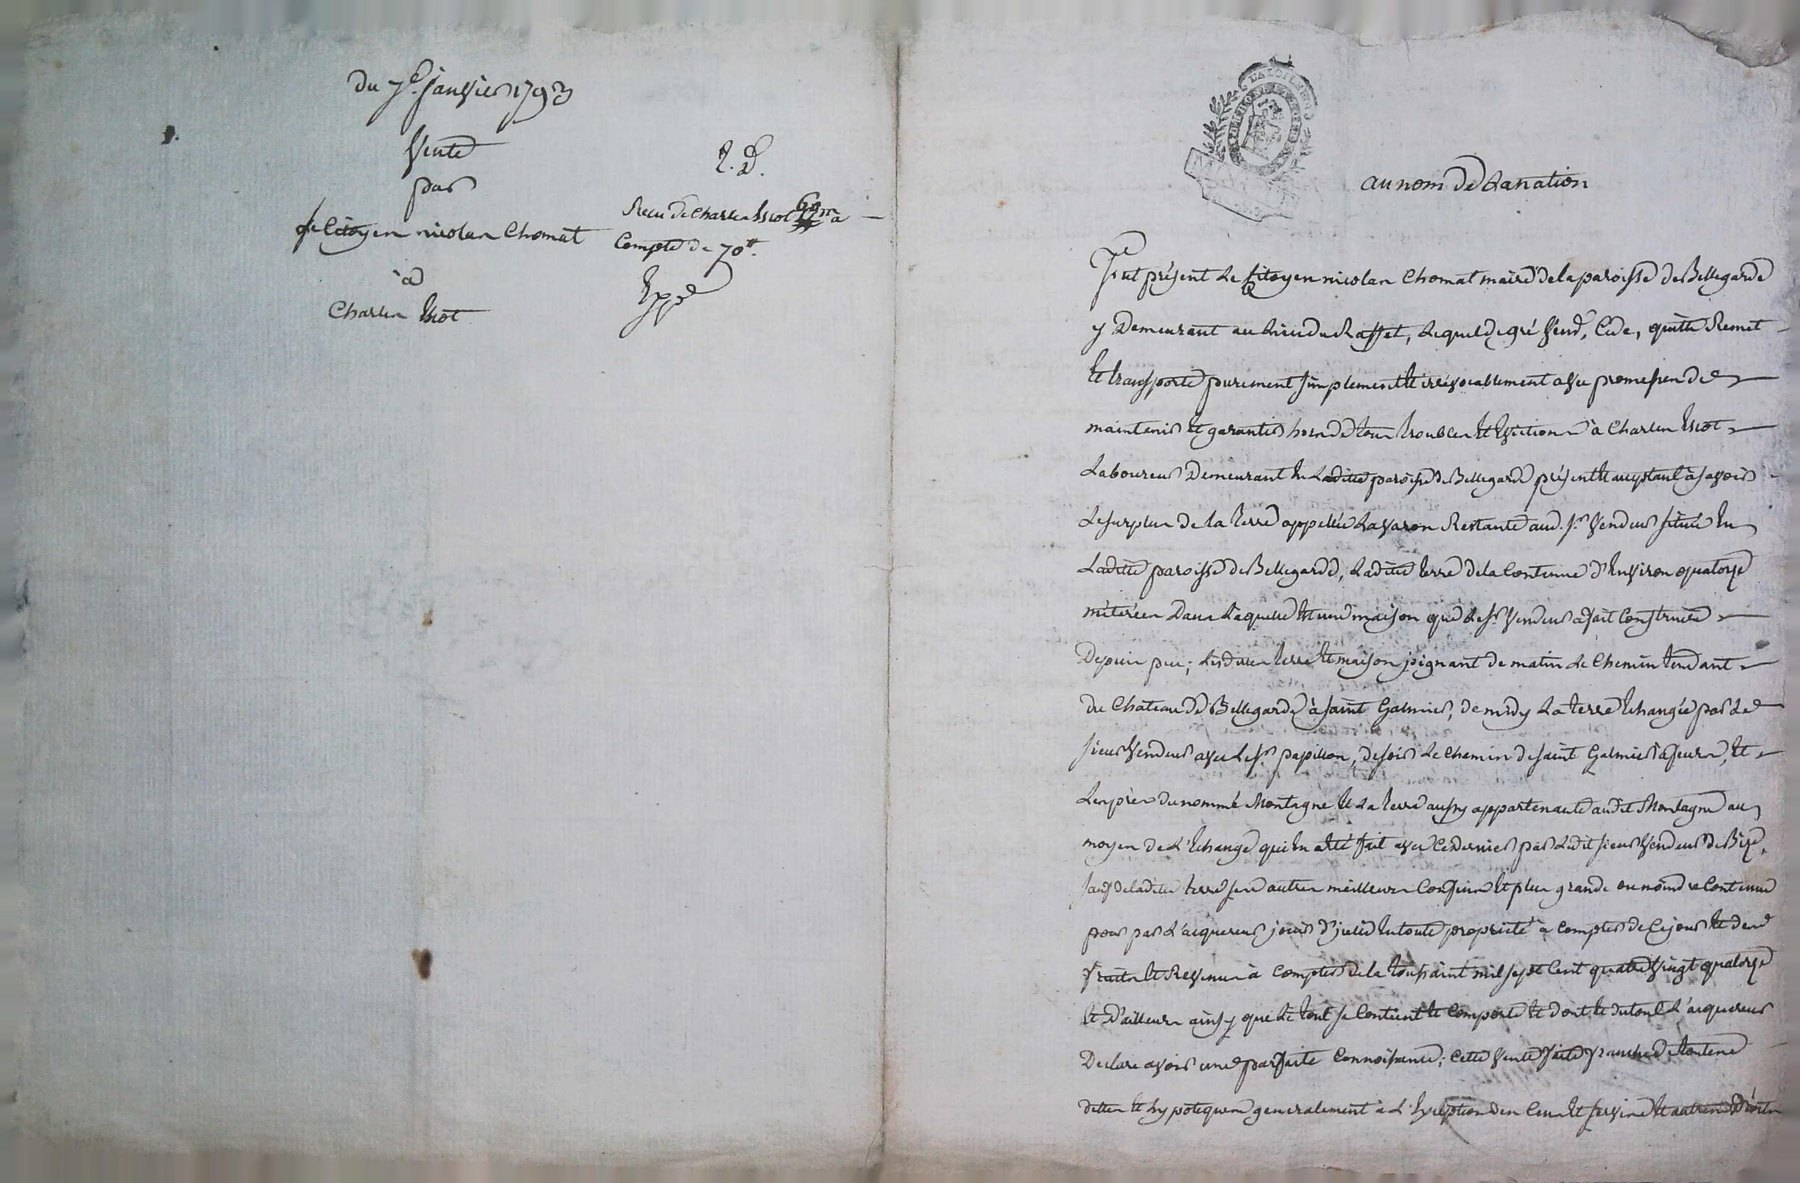 du 7e. janvier 1793
Vente
par
le Citoyen nicolas Chomat
à
Charles
2. d.
Reçu de Charles à
Compte de 70#.
LA LOI
au nom de la nation
Fut présent Le Citoyen nicolas Chomat maire de la paroisse de Bellegarde
y Demeurant au Lieu du Raffet, Lequel de gré Vend, Cède, quitte Remet
et transporte purement simplement et irrévocablement avec promesses de
maintenir et garantir hors de tous troubles et Evictions à Charles
Laboureur Demeurant en Laditte paroisse de Bellegarde présent et acceptant à savoir
Le surplus de la terre appellée Lavaron Restante aud. sr. Vendeur située En
Laditte paroisse de Bellegarde, Laditte terre de la Contenue d'Environ quatorze
méterées Dans Laquelle Est une maison que Le sr. Vendeur a fait Construire
Depuis peu; Lesdittes terre et maison joignant de matin Le Chemin tendant
du Chateau de Bellegarde à saint Galmier, de midy La terre Echangée par Le
sieur Vendeur avec Le sr. papillon, de soir Le chemin de saint Galmier à feurs, et
Les près du nommé Montagne et La terre aussy appartenante audit Montagne au
moyen de L'Echange qui En a été fait avec Ce dernier par Ledit sieur Vendeur de Bize,
sauf de laditte terre ses autres meilleurs Confins et plus grande ou moindre Contenue
pour par L'acquereur jouir d'icelle En toute propriété à Compter de Ce jour et des
fruits et Revenus à Compter de la toussaint mil sept Cent quatre Vingt quatorze
et D'ailleurs ainsy que Le tout se Contient et Comporte et dont et du tout L'acquereur
Declare avoir une parfaite Connoissance; Cette Vente faite franche de toutes
dettes et hypoteques generalement à L'Exception des Cens et servis et autres Droits